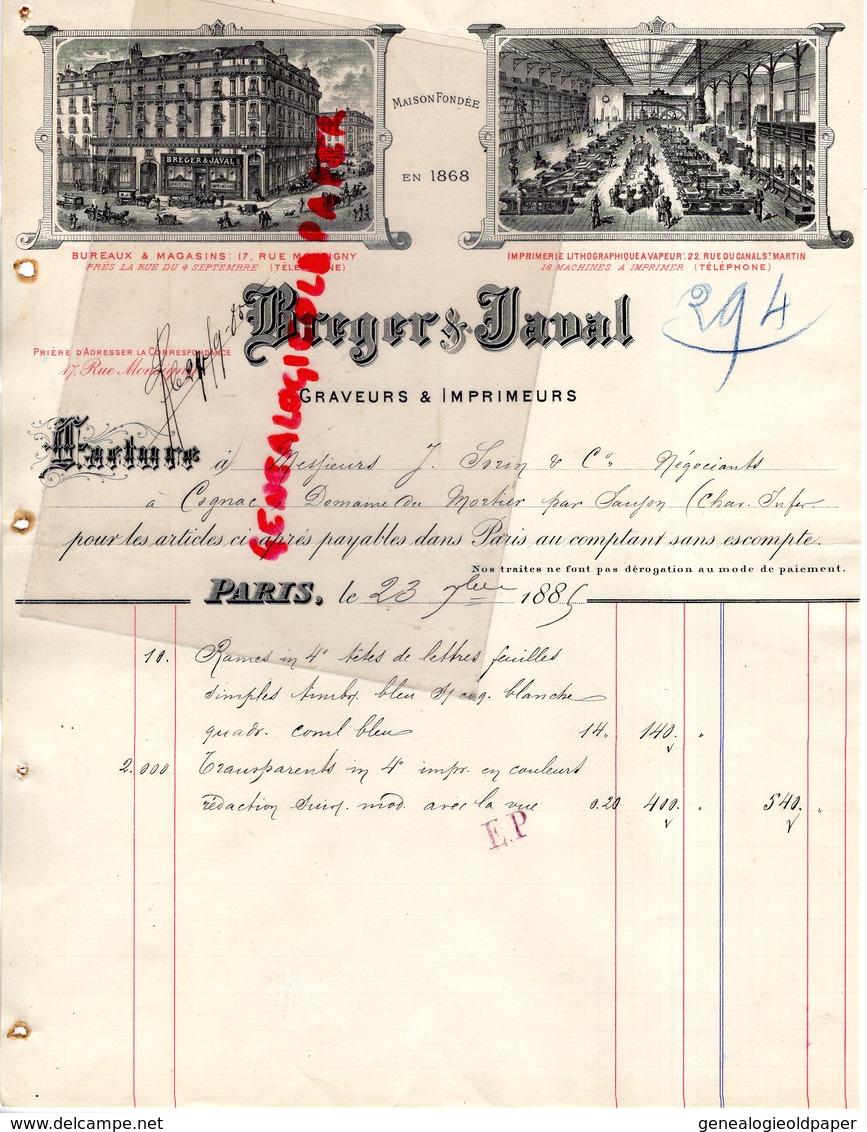 MAISON FONDÉE
EN 1868
BREGER & JAVAL
BUREAUX & MAGASINS: 17, RUE MONSIGNY
PRÈS LA RUE DU 4 SEPTEMBRE (TÉLÉPHONE)
IMPRIMERIE LITHOGRAPHIQUE A VAPEUR: 22, RUE DU CANAL ST MARTIN
18 MACHINES A IMPRIMER (TÉLÉPHONE)
Breger & Javal
294
PRIÈRE D'ADRESSER LA CORRESPONDANCE
17, Rue Monsigny
GRAVEURS & IMPRIMEURS
GENEALOGIEOLDPAPER
Facture à Messieurs J. Sorin & Co. Négociants
à Cognac, Domaine du Mortier par Saujon (Char. Infer.
pour les articles ci-après payables dans Paris au comptant sans escompte.
Nos traites ne font pas dérogation au mode de paiement.
PARIS, le 23 7bre 1885
10. Rames in 4o têtes de lettres feuilles
simples timbr. bleu s/ coq. blanche
quadr. coml bleu 14 " 140. "
2.000 Transparents in 4o impr. en couleurs
rédaction suiv. mod. avec la vue 0.20 400. " 540. "
E.P
genealogieoldpaper